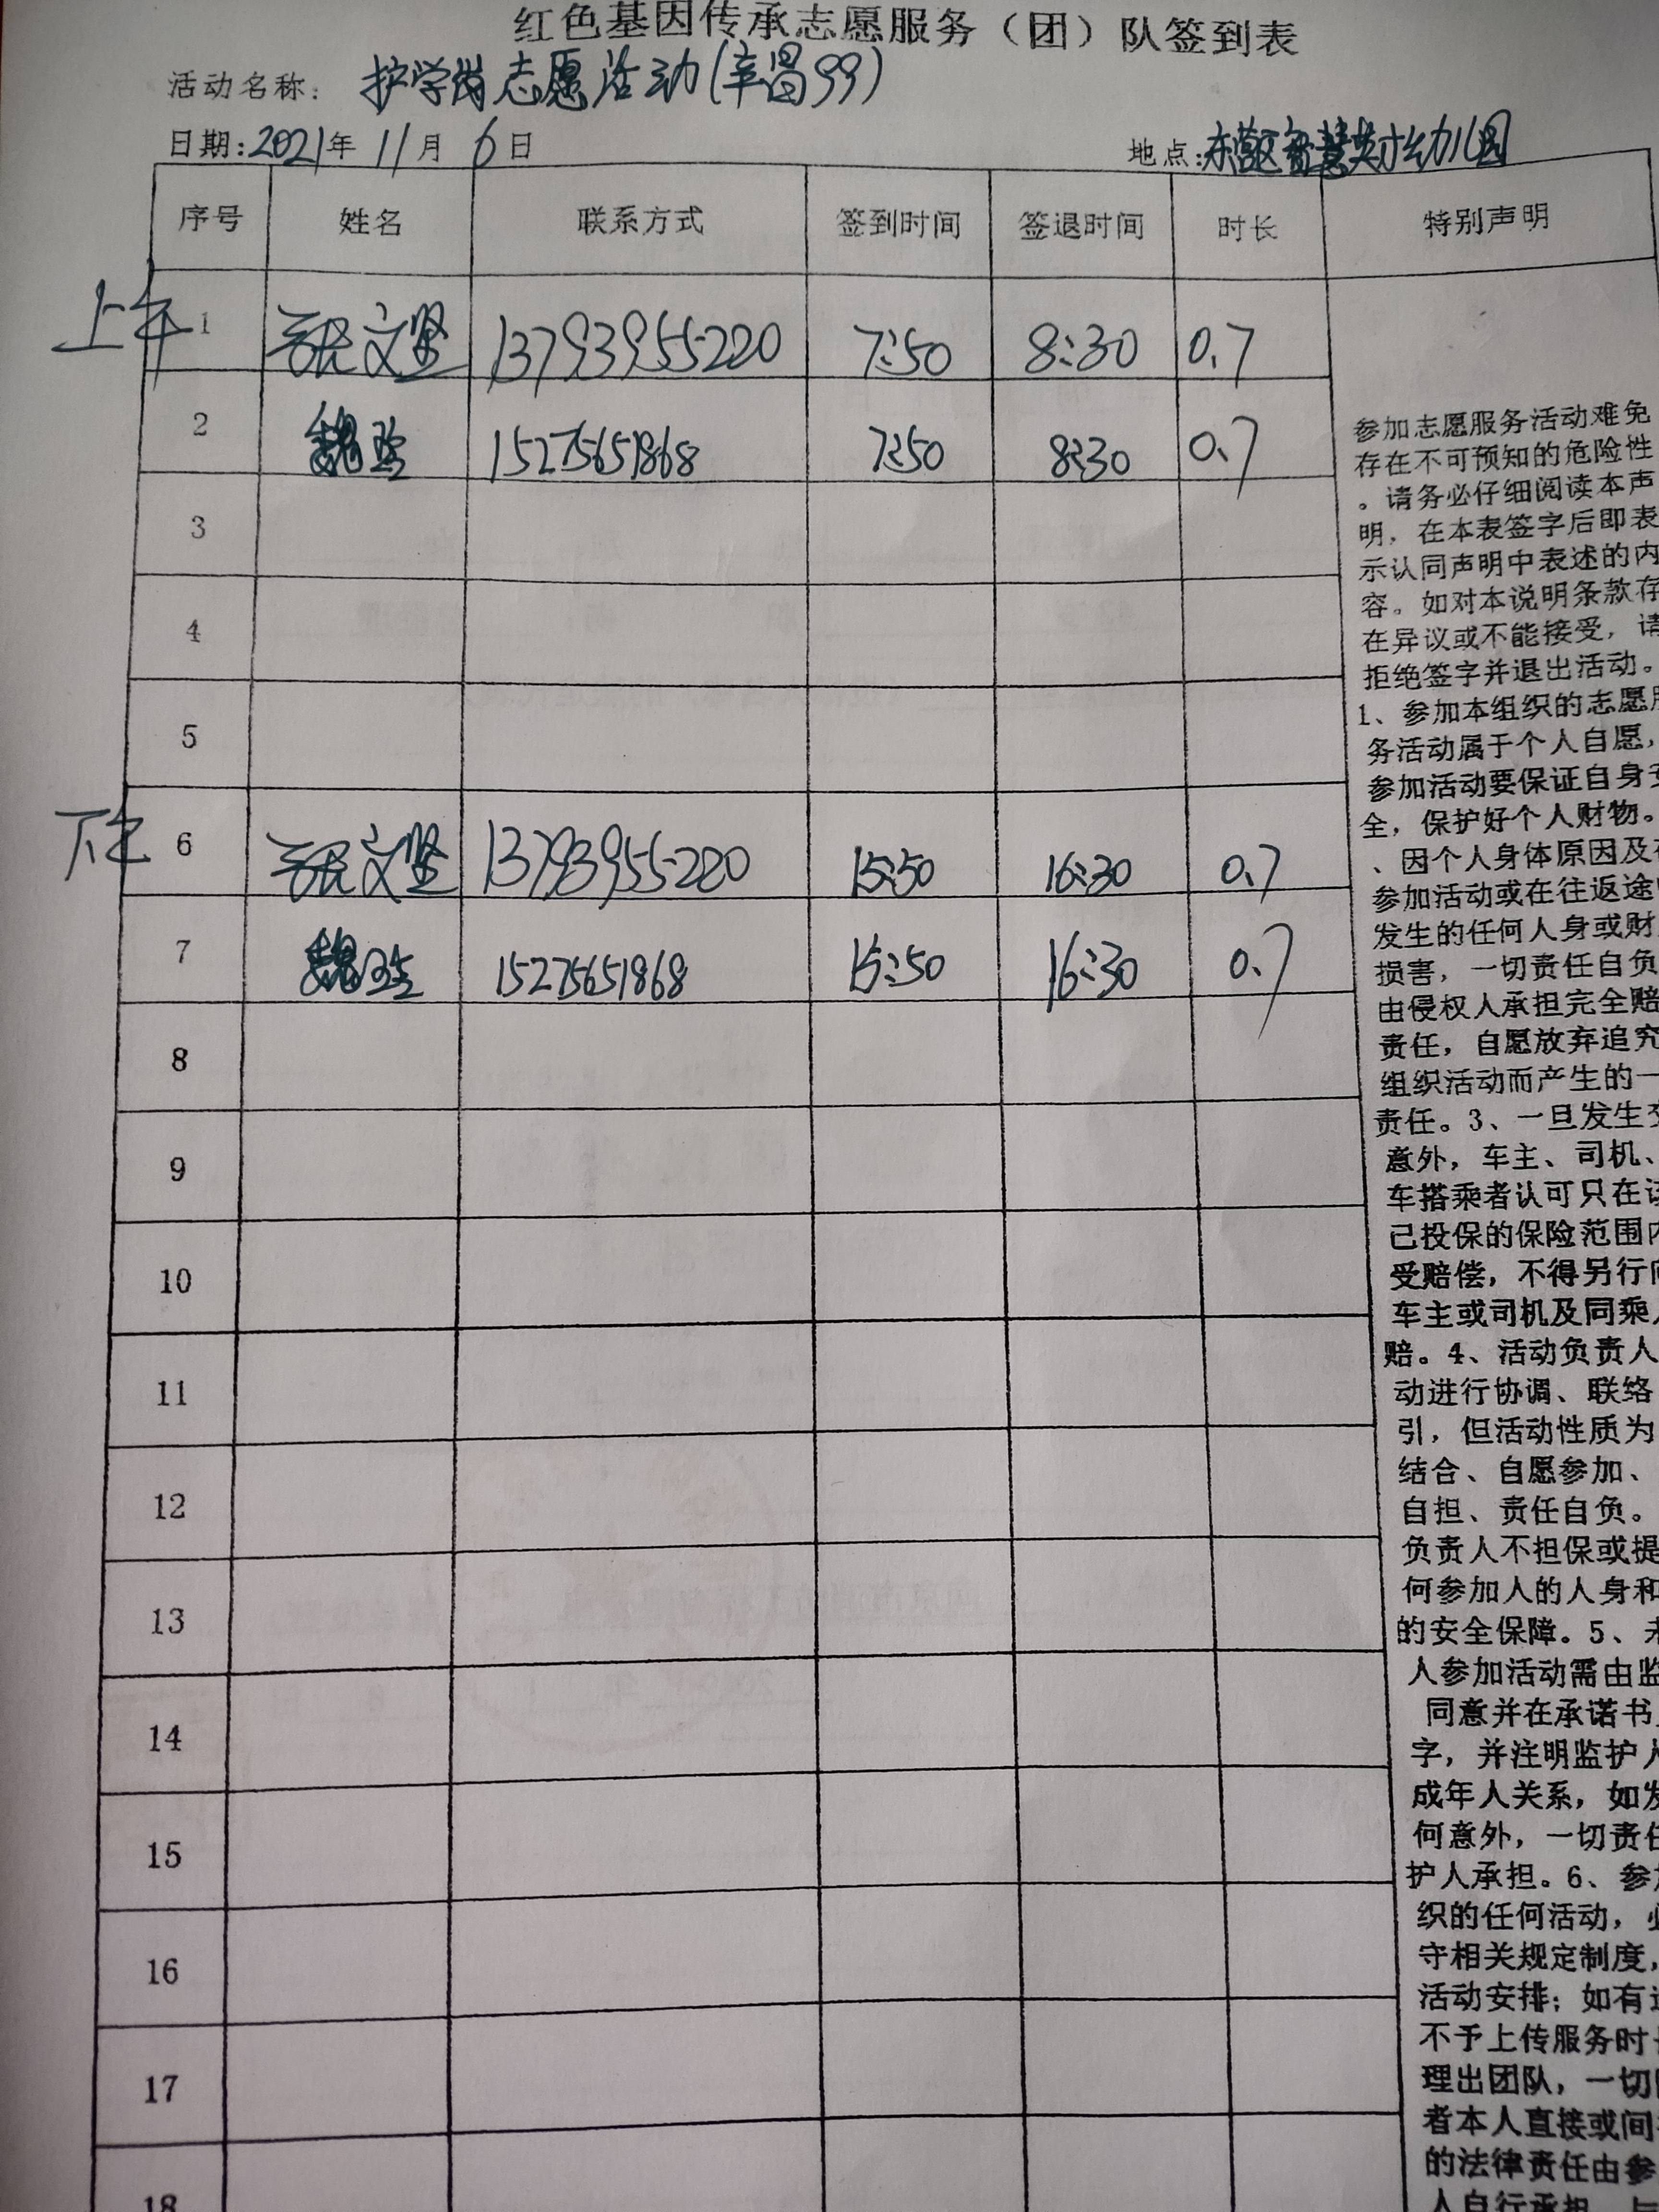 红色基因传承志愿服务（团）队签到表
活动名称：护学岗志愿活动(辛昌99)
日期:2021年 11月 6日 地点:东营区智慧英才幼儿园
序号 姓名 联系方式 签到时间 签退时间 时长 特别声明
上午 1 张文坚 13793955220 7:50 8:30 0.7
2 魏 15275651868 7:50 8:30 0.7
3
4
5
下午 6 张文坚 13793955220 15:50 16:30 0.7
7 魏 15275651868 15:50 16:30 0.7
8
9
10
11
12
13
14
15
16
17
18
参加志愿服务活动难免
存在不可预知的危险性
。请务必仔细阅读本声
明，在本表签字后即表
示认同声明中表述的内
容。如对本说明条款存
在异议或不能接受，请
拒绝签字并退出活动。
1、参加本组织的志愿服
务活动属于个人自愿，
参加活动要保证自身安
全，保护好个人财物。
、因个人身体原因及在
参加活动或在往返途中
发生的任何人身或财产
损害，一切责任自负
由侵权人承担完全赔
责任，自愿放弃追究
组织活动而产生的一
责任。3、一旦发生交
意外，车主、司机、
车搭乘者认可只在该
已投保的保险范围内
受赔偿，不得另行向
车主或司机及同乘人
赔。4、活动负责人
动进行协调、联络
引，但活动性质为
结合、自愿参加、
自担、责任自负。
负责人不担保或提
何参加人的人身和
的安全保障。5、未
人参加活动需由监
同意并在承诺书
字，并注明监护人
成年人关系，如发
何意外，一切责任
护人承担。6、参加
织的任何活动，必
守相关规定制度，
活动安排；如有违
不予上传服务时长
理出团队，一切
者本人直接或间接
的法律责任由参
人自行承担，与